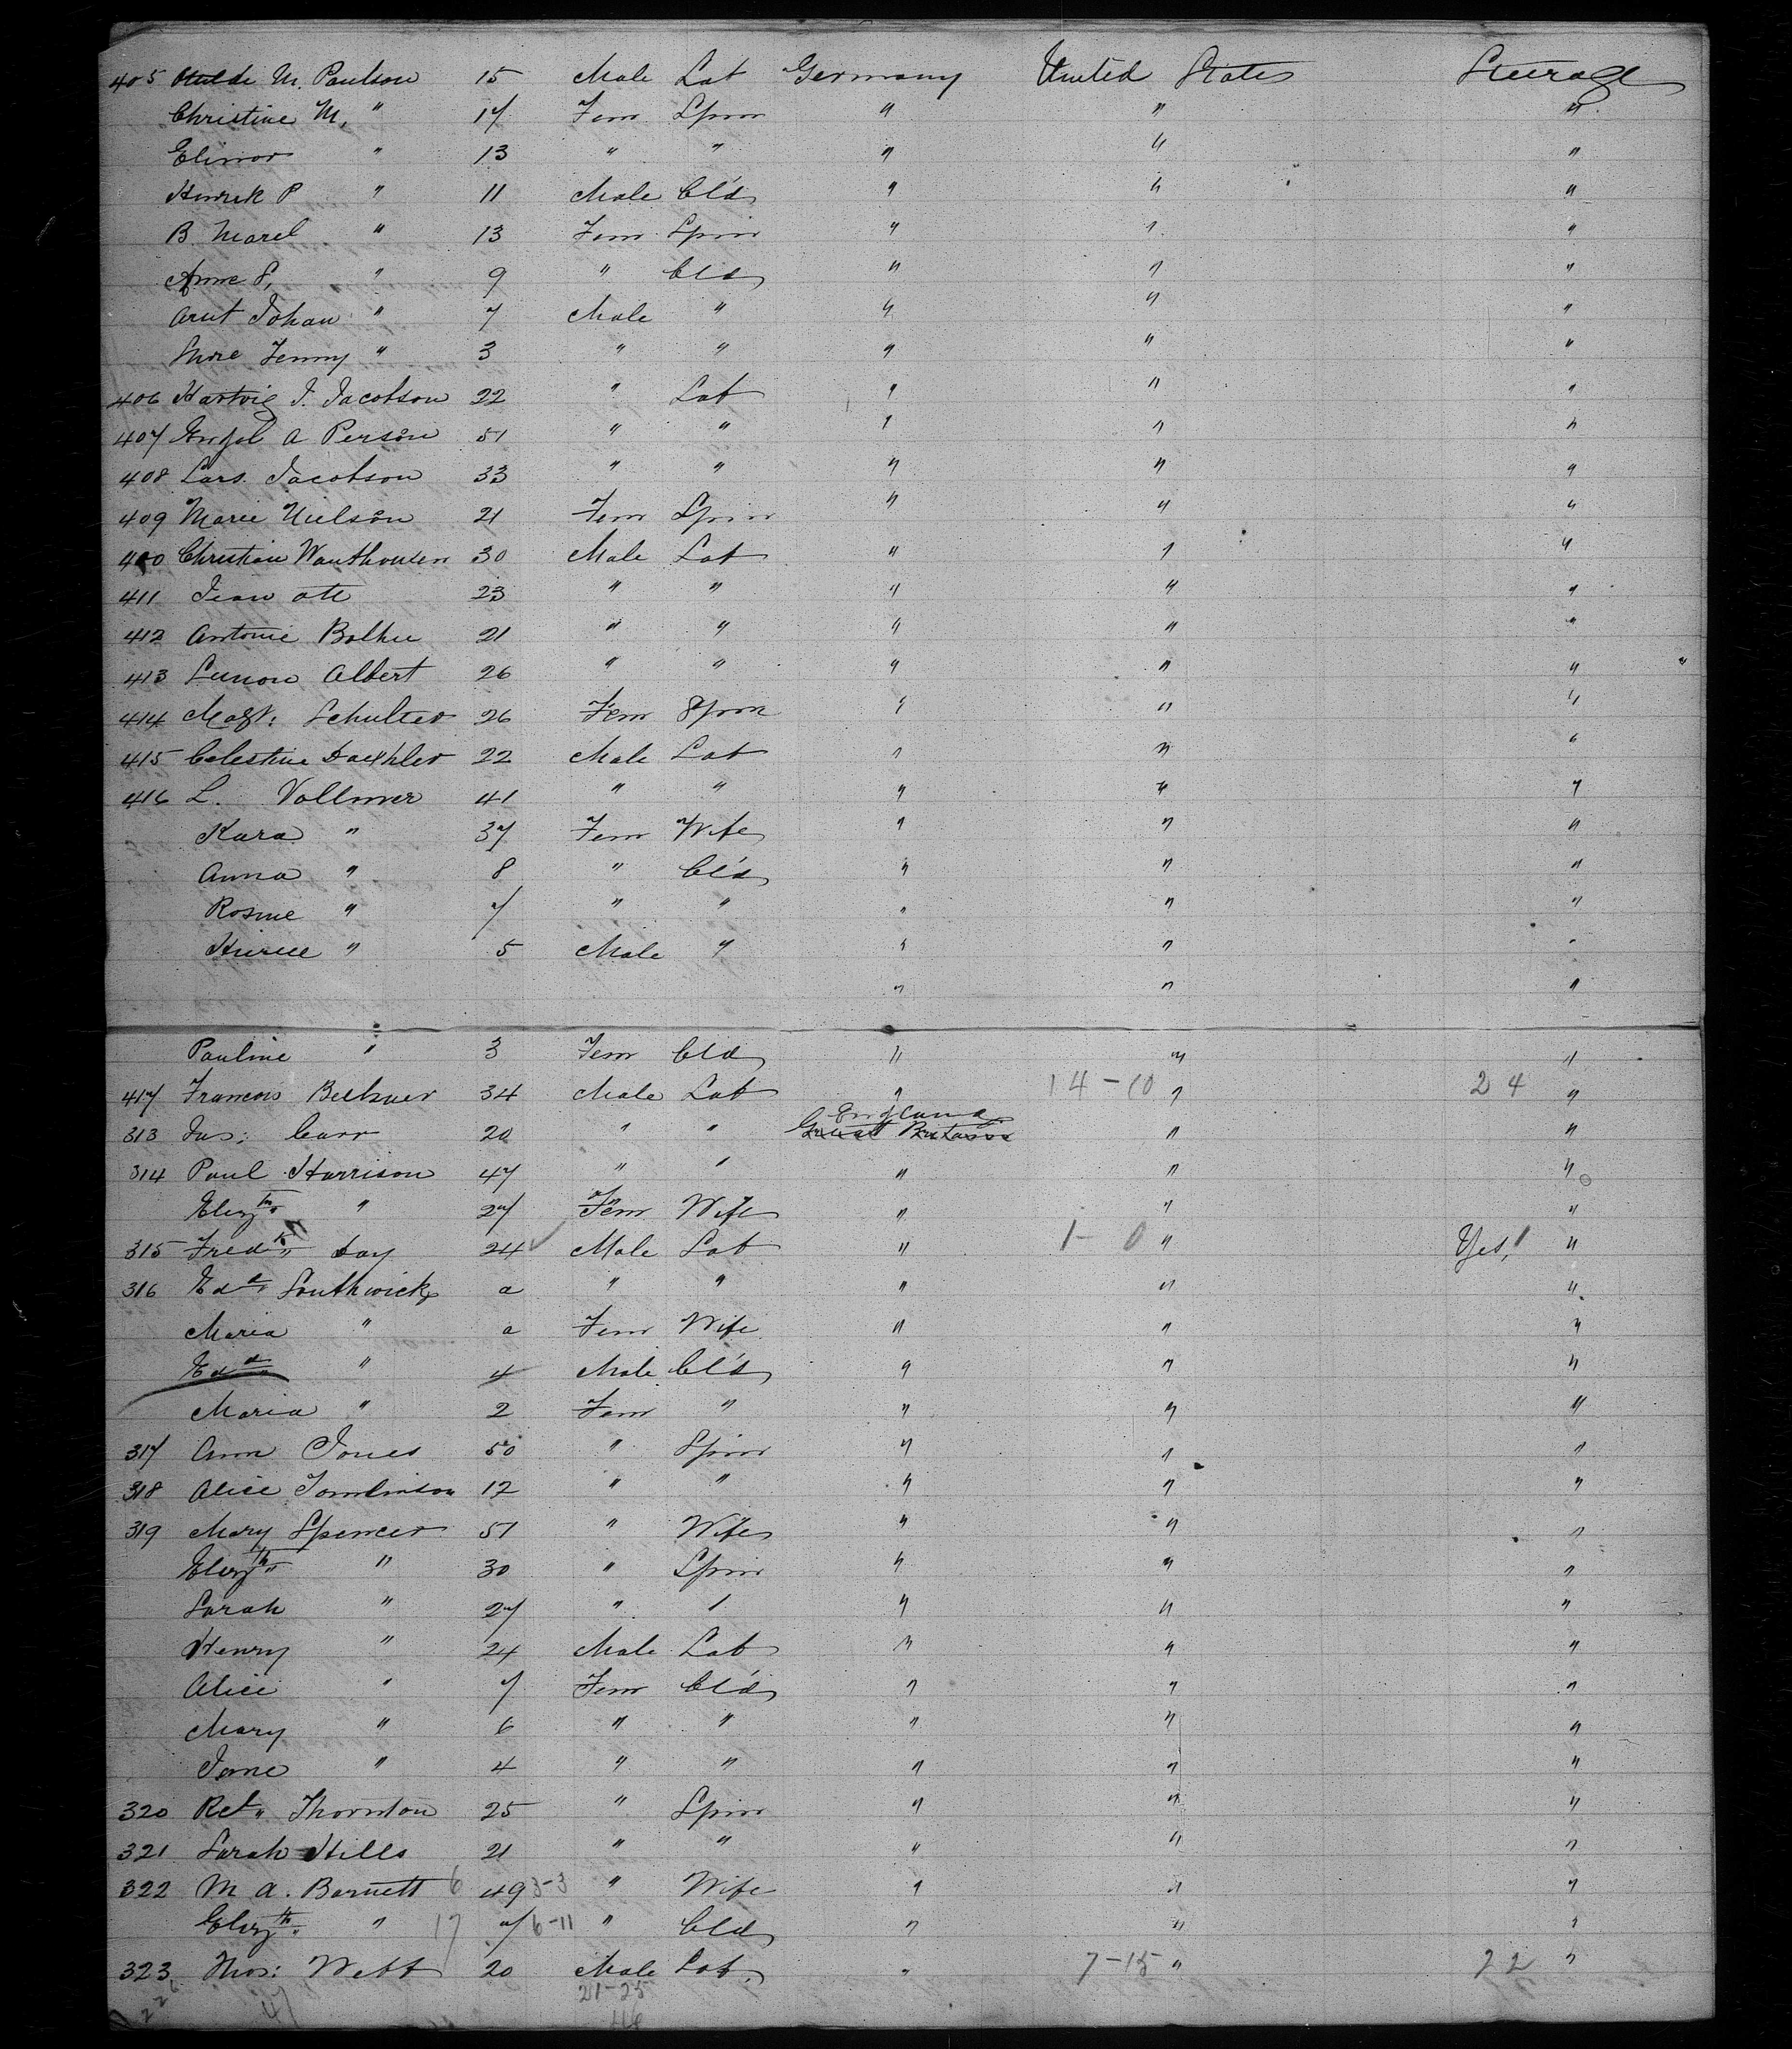 405 M. Paulson 15 Male Lab Germany United States Steerage
Christine M. " 17 Fem Spin " " "
Elinor " 13 " " " " "
P " 11 Male Cl'd " " "
B. Marel " 13 Fem Spin " " "
Anne S. " 9 " Cl'd " " "
Johan " 7 Male " " " "
Jenny " 3 " " " " "
406 Hartvig J. Jacobson 22 " Lab " " "
407 A Person 51 " " " " "
408 Lars. Jacobson 33 " " " " "
409 Marie Nielson 21 Fem Spin " " "
410 Christian 30 Male Lab " " "
411 23 " " " " "
412 Antonie 21 " " " " "
413 Albert 26 " " " " " "
414 Magt: Schulter 26 Fem Spin " " "
415 Celestine 22 Male Lab " " "
416 L. Vollmer 41 " " " " "
Kara " 37 Fem Wife " " "
Anna " 8 " Cl'd " " "
Rosine " 7 " " " " "
" 5 Male " " " "
" " "
Pauline " 3 Fem Cld " " "
417 Francois 34 Male Lab " 14-10 " 24 "
England
313 Jas: Carr 20 " " Great Britain " "
314 Paul Harrison 47 " " " " "
Elizth " 27 Fem Wife " " "
315 Fredk Day 24 Male Lab " 1-0 " Yes, 1 "
316 Edd Southwick a " " " " "
Maria " a Fem Wife " " "
Edd " 4 Male Cl'd " " "
Maria " 2 Fem " " " "
317 Ann Jones 50 " Spin " " "
318 Alice Tomlinson 12 " " " " "
319 Mary Spencer 51 " Wife " " "
Elizth " 30 " Spin " " "
Sarah " 27 " " " " "
Henry " 24 Male Lab " " "
Alice " 7 Fem Cl'd " " "
Mary " 6 " " " " "
Jane " 4 " " " " "
320 Thornton 25 " Spin " " "
321 Sarah Hills 21 " " " " "
322 M A. Barnett 6 49 3-3 " Wife " " "
Elizth " 17 7 6-11 " Cld " " "
323 Thos: Webb 20 Male Lab. " 7-15 " 22 "
226 47 21-25
46